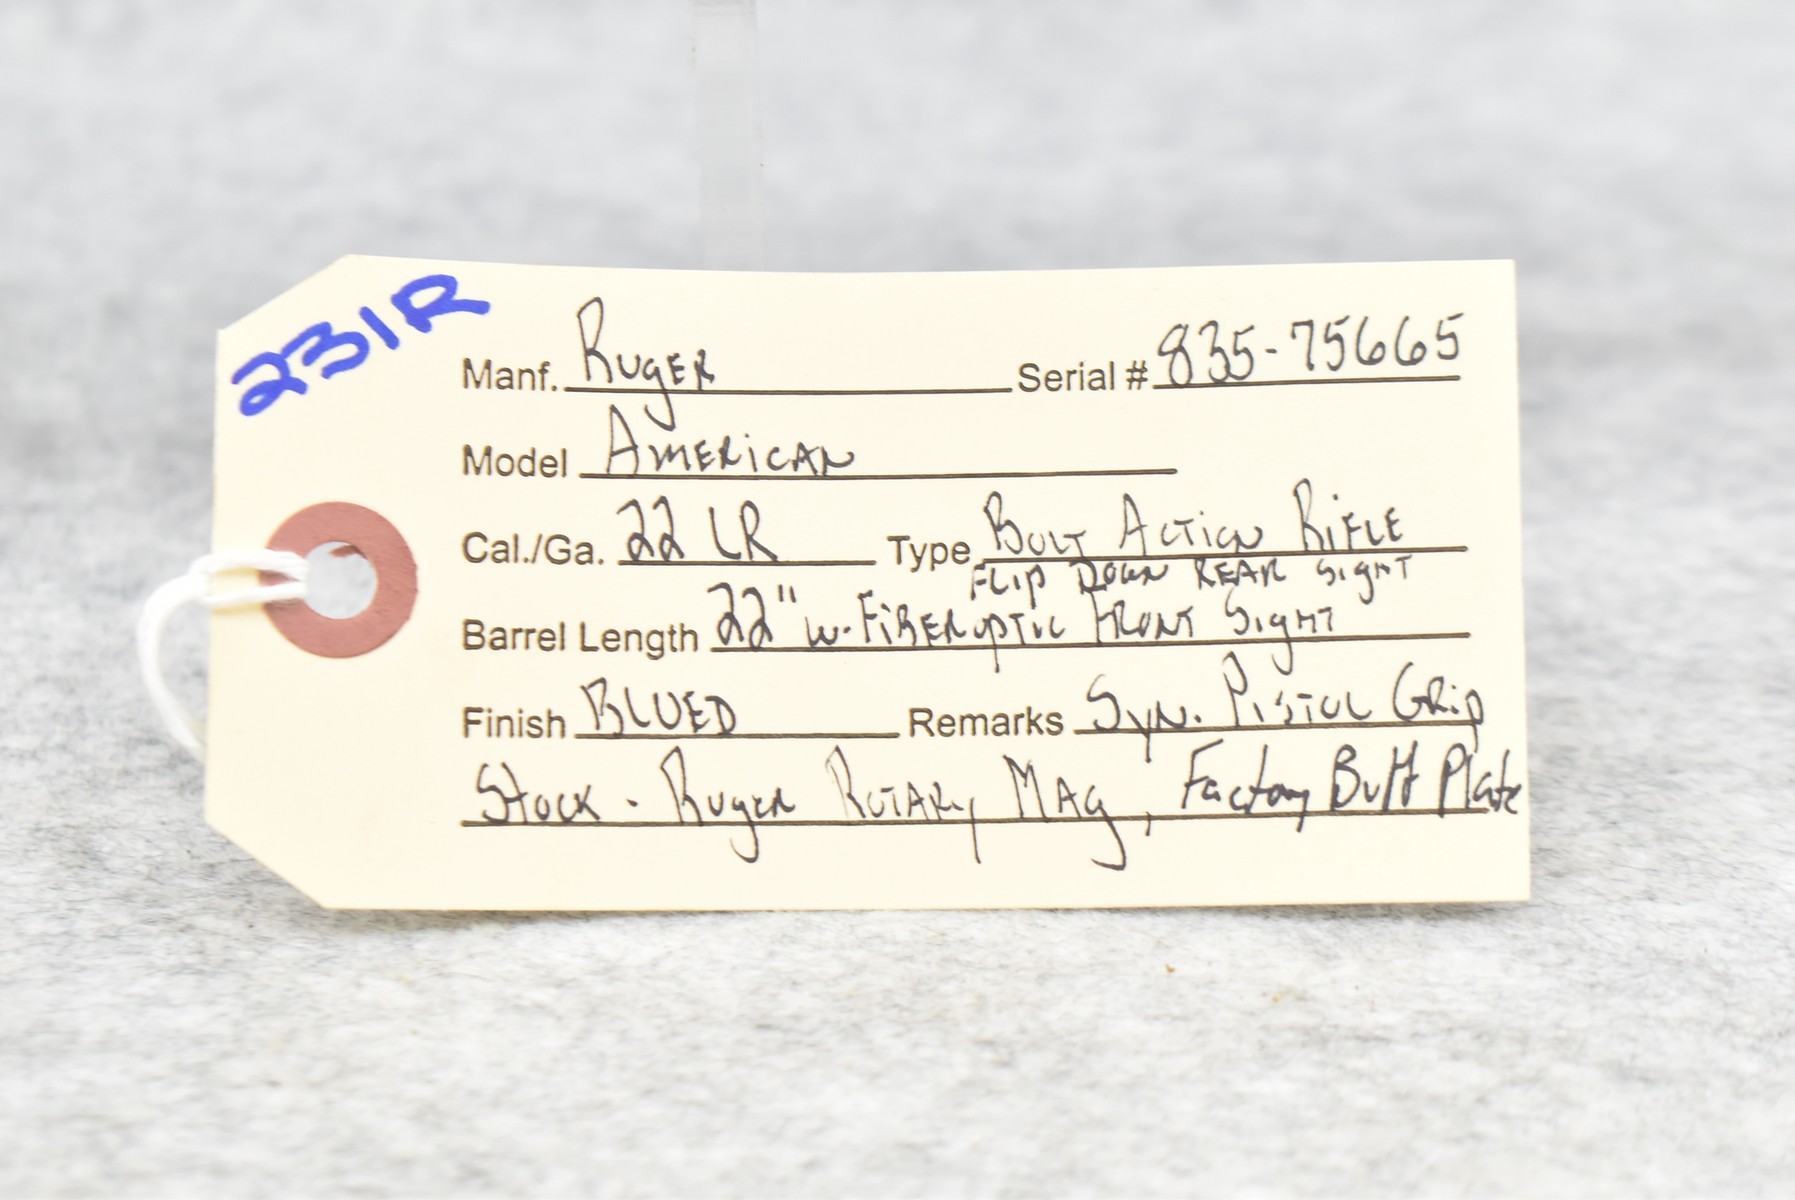 231R
Manf. Ruger Serial # 835-75665
Model American
Cal./Ga. 22 LR Type Bolt Action Rifle
Flip Down Rear Sight
Barrel Length 22" w. Fiberoptic Front Sight
Finish Blued Remarks Syn. Pistol Grip
Stock - Ruger Rotary Mag, Factory Butt Plate